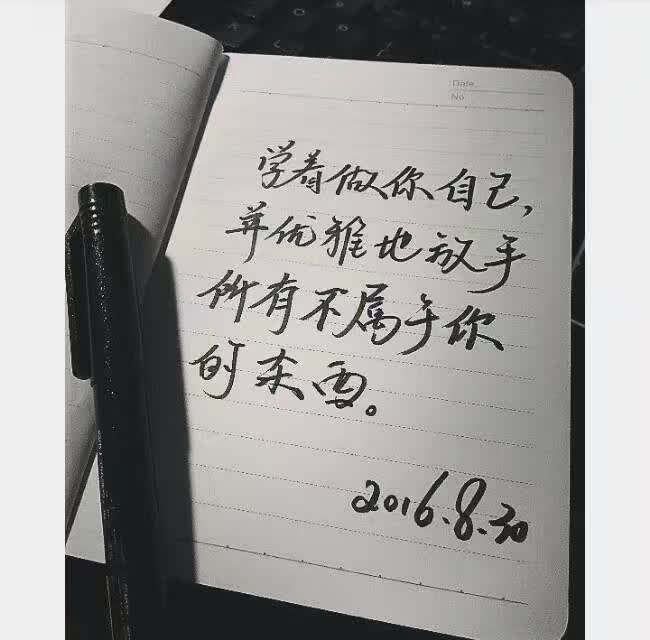 Date
No
学着做你自己，
并优雅地放手
所有不属于你
的东西。
2016.8.30